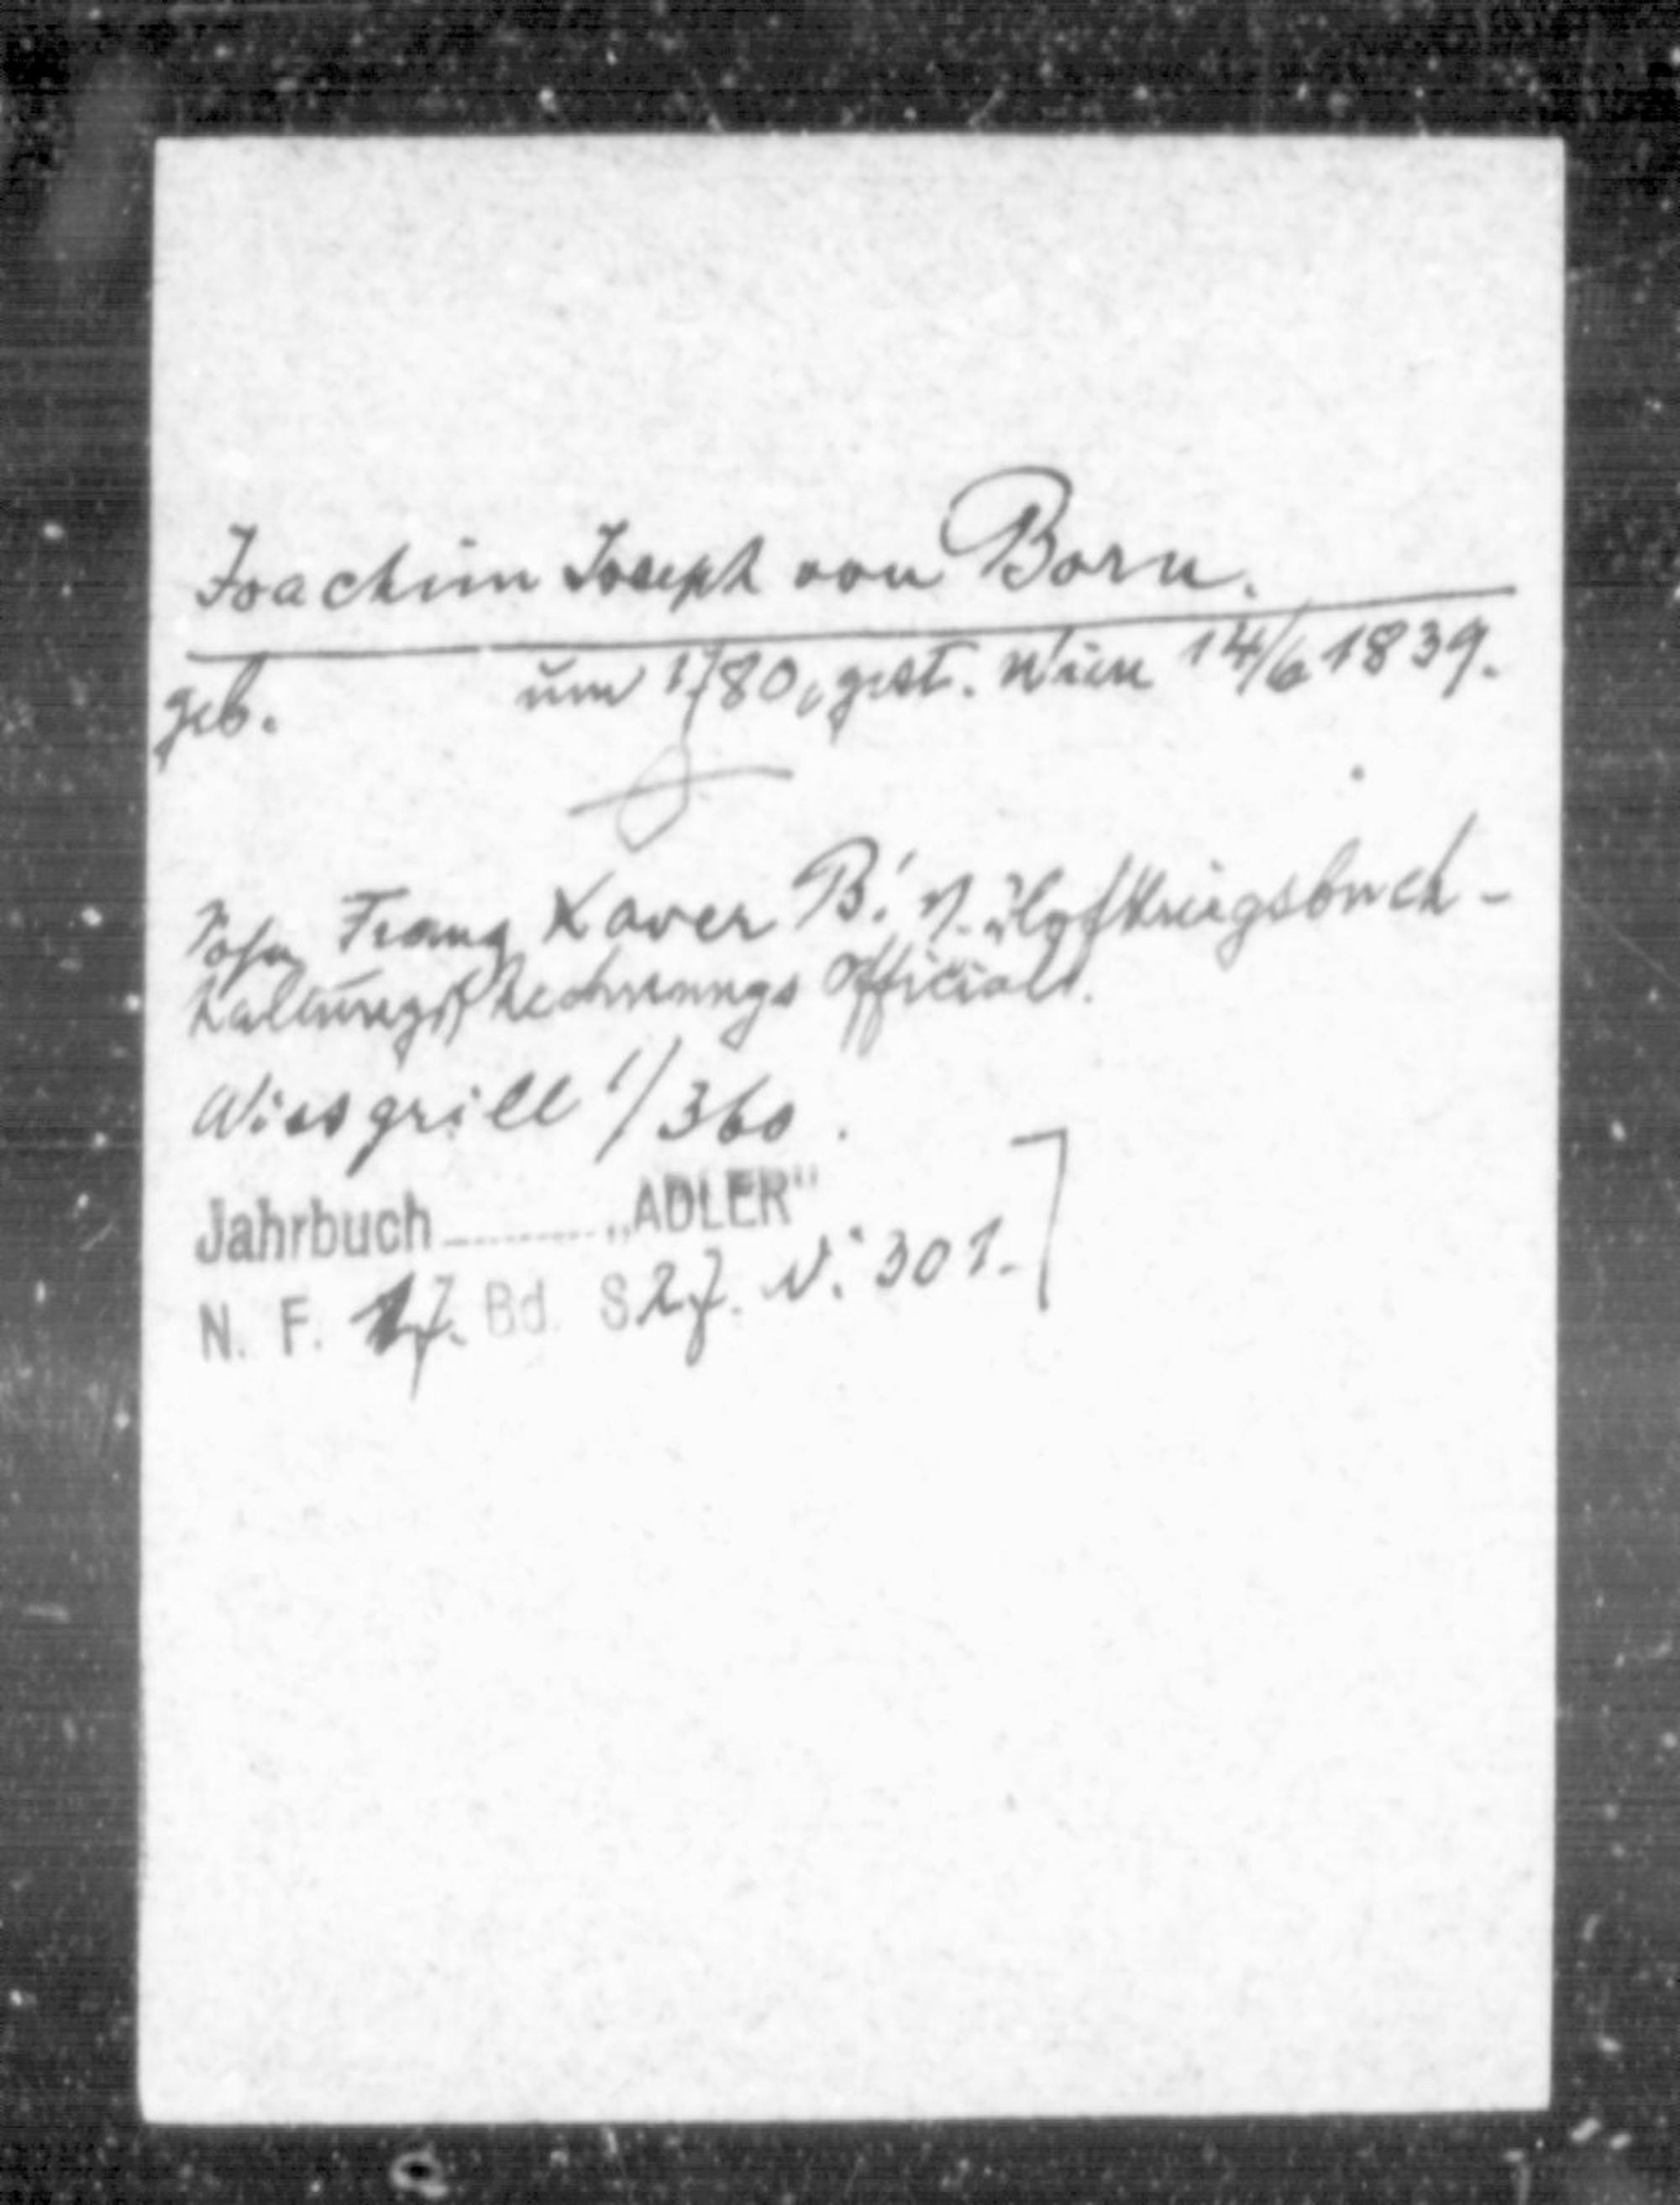 Joachim Joseph von Born.
geb. um 1780, gest. Wien 14/6 1839.
Sohn Franz Xaver B. Hofkriegsbuch-
haltungs Rechnungs Officials.
Wissgrill 1/360.
Jahrbuch ......... „ADLER“
N. F. 17. Bd. S 27. N: 301.